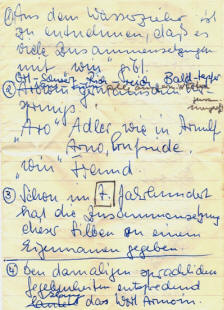 ① Aus dem Wasserzieher ist
zu entnehmen, daß es
viele Zusammensetzungen
mit "win" gibt.
②
"Aro" Adler wie in Arnulf
Arno,
"win" Freund.
③ Schon im 7. Jahrhundert
hat die Zusammensetzung
dieser Silben zu einem
Eigennamen gegeben.
④ Den damaligen sprachlichen
Gegebenheiten entsprechend
das Wort Arnoin.